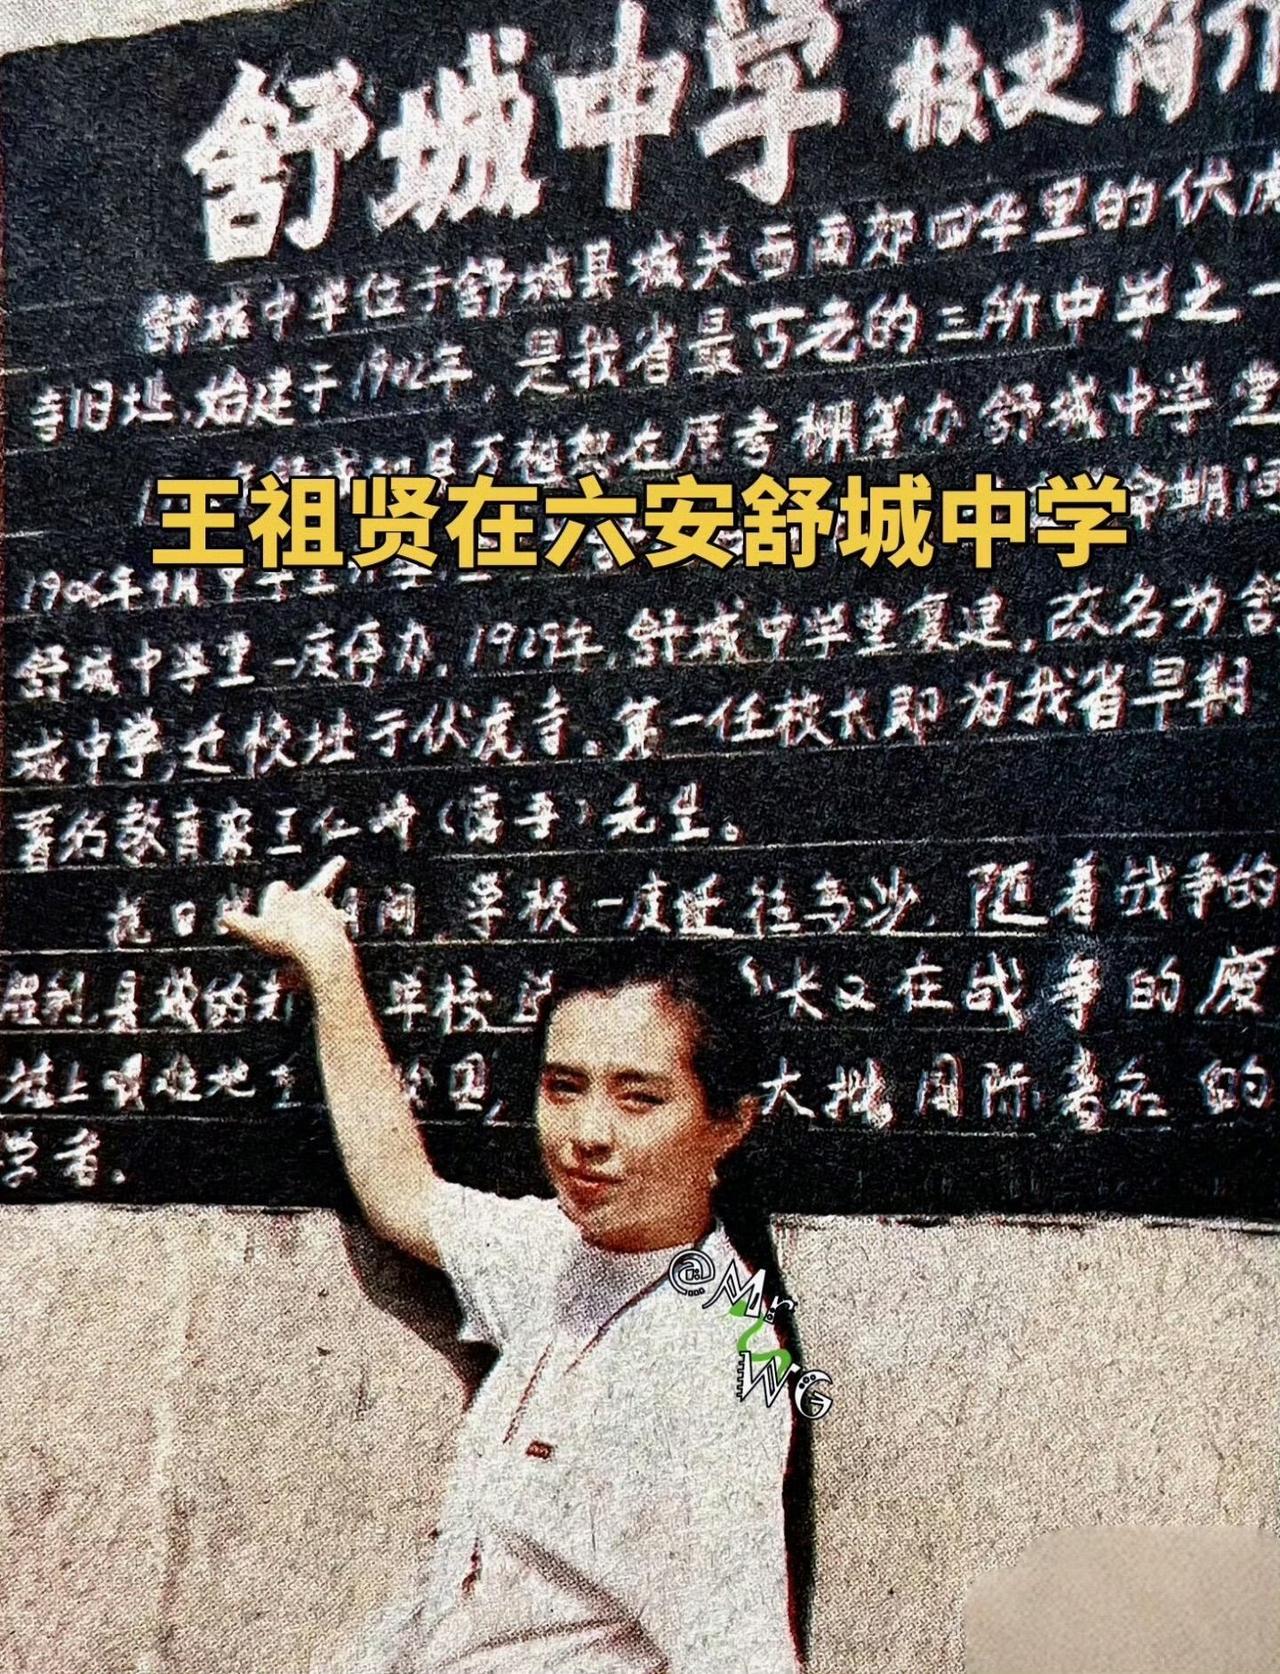 舒城中学 校史简介
舒城中学位于舒城县城关西南郊四华里的伏虎
寺旧址,始建于1902年,是我省最古老的三所中学之一
在原考棚筹办舒城中学堂
王祖贤在六安舒城中学
1906年
舒城中学堂一度停办,1929年,舒城中学堂复建,改名为舒
城中学,迁校址于伏虎寺。第一任校长即为我省早期
著名教育家王仁峰( )先生。
抗日 期间,学校一度迁往乌沙,随着战争的
胜利,县城的 学校 又在战争的废
墟上 地 大批国际著名的
学者。
@Mr WG